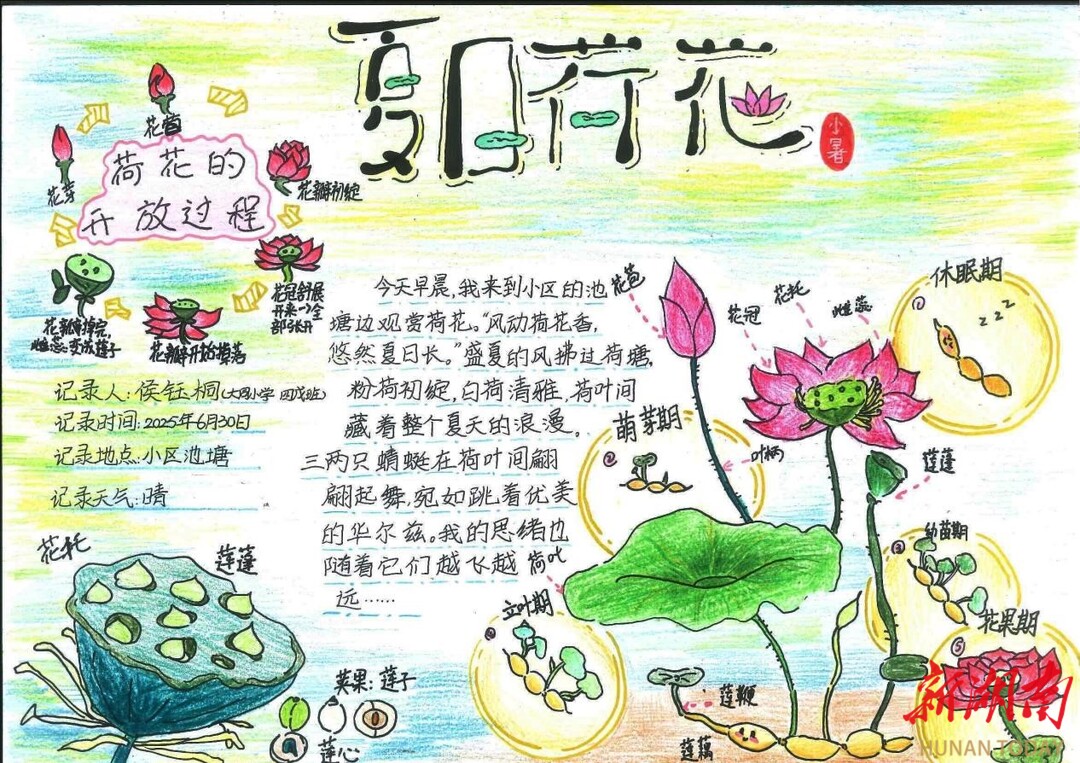 夏日荷花
小暑
花苞
花芽
荷花的
开放过程
花瓣初绽
花冠舒展
开来→全
部张开
花瓣开始掉落
花瓣掉完,
雌蕊变成莲子
记录人:侯钰桐
记录时间:2025年6月30日
记录地点:小区池塘
记录天气:晴
今天早晨,我来到小区的池
塘边观赏荷花。“风动荷花香,
悠然夏日长。”盛夏的风拂过荷塘,
粉荷初绽,白荷清雅,荷叶间
藏着整个夏天的浪漫。
三两只蜻蜓在荷叶间翩
翩起舞,宛如跳着优美
的华尔兹。我的思绪也
随着它们越飞越
远……
花苞
花冠
花托
雌蕊
叶柄
莲蓬
荷叶
①
休眠期
zzz
②
萌芽期
③
幼苗期
④
立叶期
⑤
花果期
莲鞭
莲藕
花托
莲蓬
英果:莲子
莲心
新湖南
HUNAN TODAY